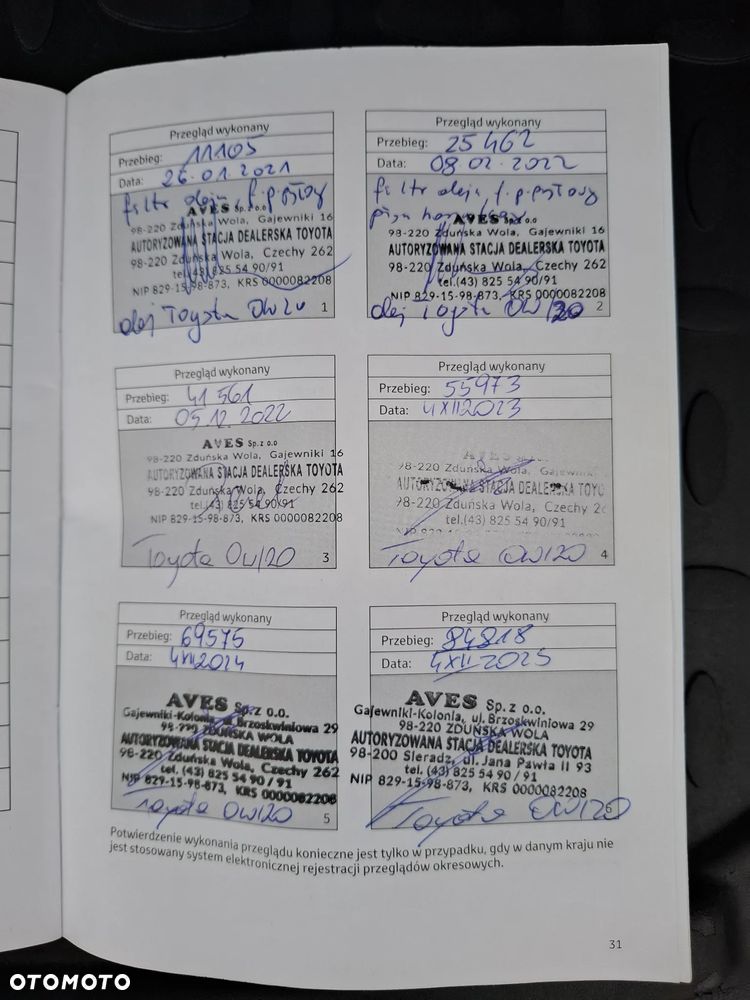 Przegląd wykonany
Przebieg: 11105
Data: 26.01.2021
filtr oleju, f. p.pyłowy
AVES Sp. z o.o
98-220 Zduńska Wola, Gajewniki 16
AUTORYZOWANA STACJA DEALERSKA TOYOTA
98-220 Zduńska Wola, Czechy 262
tel.(43) 825 54 90/91
NIP 829-15-98-873, KRS 0000082208
olej Toyota 0W20
1
Przegląd wykonany
Przebieg: 25 462
Data: 08 02. 2022
filtr oleju f. p.pyłowy
płyn
AVES Sp. z o.o
98-220 Zduńska Wola, Gajewniki 16
AUTORYZOWANA STACJA DEALERSKA TOYOTA
98-220 Zduńska Wola, Czechy 262
tel.(43) 825 54 90/91
NIP 829-15-98-873, KRS 0000082208
olej Toyota 0W/20
2
Przegląd wykonany
Przebieg: 41 561
Data: 05.12.2022
AVES Sp. z o.o
98-220 Zduńska Wola, Gajewniki 16
AUTORYZOWANA STACJA DEALERSKA TOYOTA
98-220 Zduńska Wola, Czechy 262
tel.(43) 825 54 90/91
NIP 829-15-98-873, KRS 0000082208
Toyota 0W/20
3
Przegląd wykonany
Przebieg: 55973
Data: 4XII2023
98-220 Zduńska Wola,
AUTORYZOWANA STACJA DEALERSKA TOYO
98-220 Zduńska Wola, Czechy 2
tel.(43) 825 54 90/91
Toyota 0W/20
4
Przegląd wykonany
Przebieg: 69575
Data: 4XII2024
AVES Sp. z o.o.
Gajewniki-Kolonia, ul. Brzoskwiniowa 29
98-220 ZDUŃSKA WOLA
AUTORYZOWANA STACJA DEALERSKA TOYOTA
98-220 Zduńska Wola, Czechy 262
tel. (43) 825 54 90 / 91
NIP 829-15-98-873, KRS 0000082208
Toyota 0W/20
5
Przegląd wykonany
Przebieg: 84818
Data: 4XII 2025
AVES Sp. z o.o.
Gajewniki-Kolonia, ul. Brzoskwiniowa 29
98-220 ZDUŃSKA WOLA
AUTORYZOWANA STACJA DEALERSKA TOYOTA
98-200 Sieradz, ul. Jana Pawła II 93
tel. (43) 825 54 90 / 91
NIP 829-15-98-873, KRS 0000082208
Toyota 0W/20
6
Potwierdzenie wykonania przeglądu konieczne jest tylko w przypadku, gdy w danym kraju nie
jest stosowany system elektronicznej rejestracji przeglądów okresowych.
31
OTOMOTO